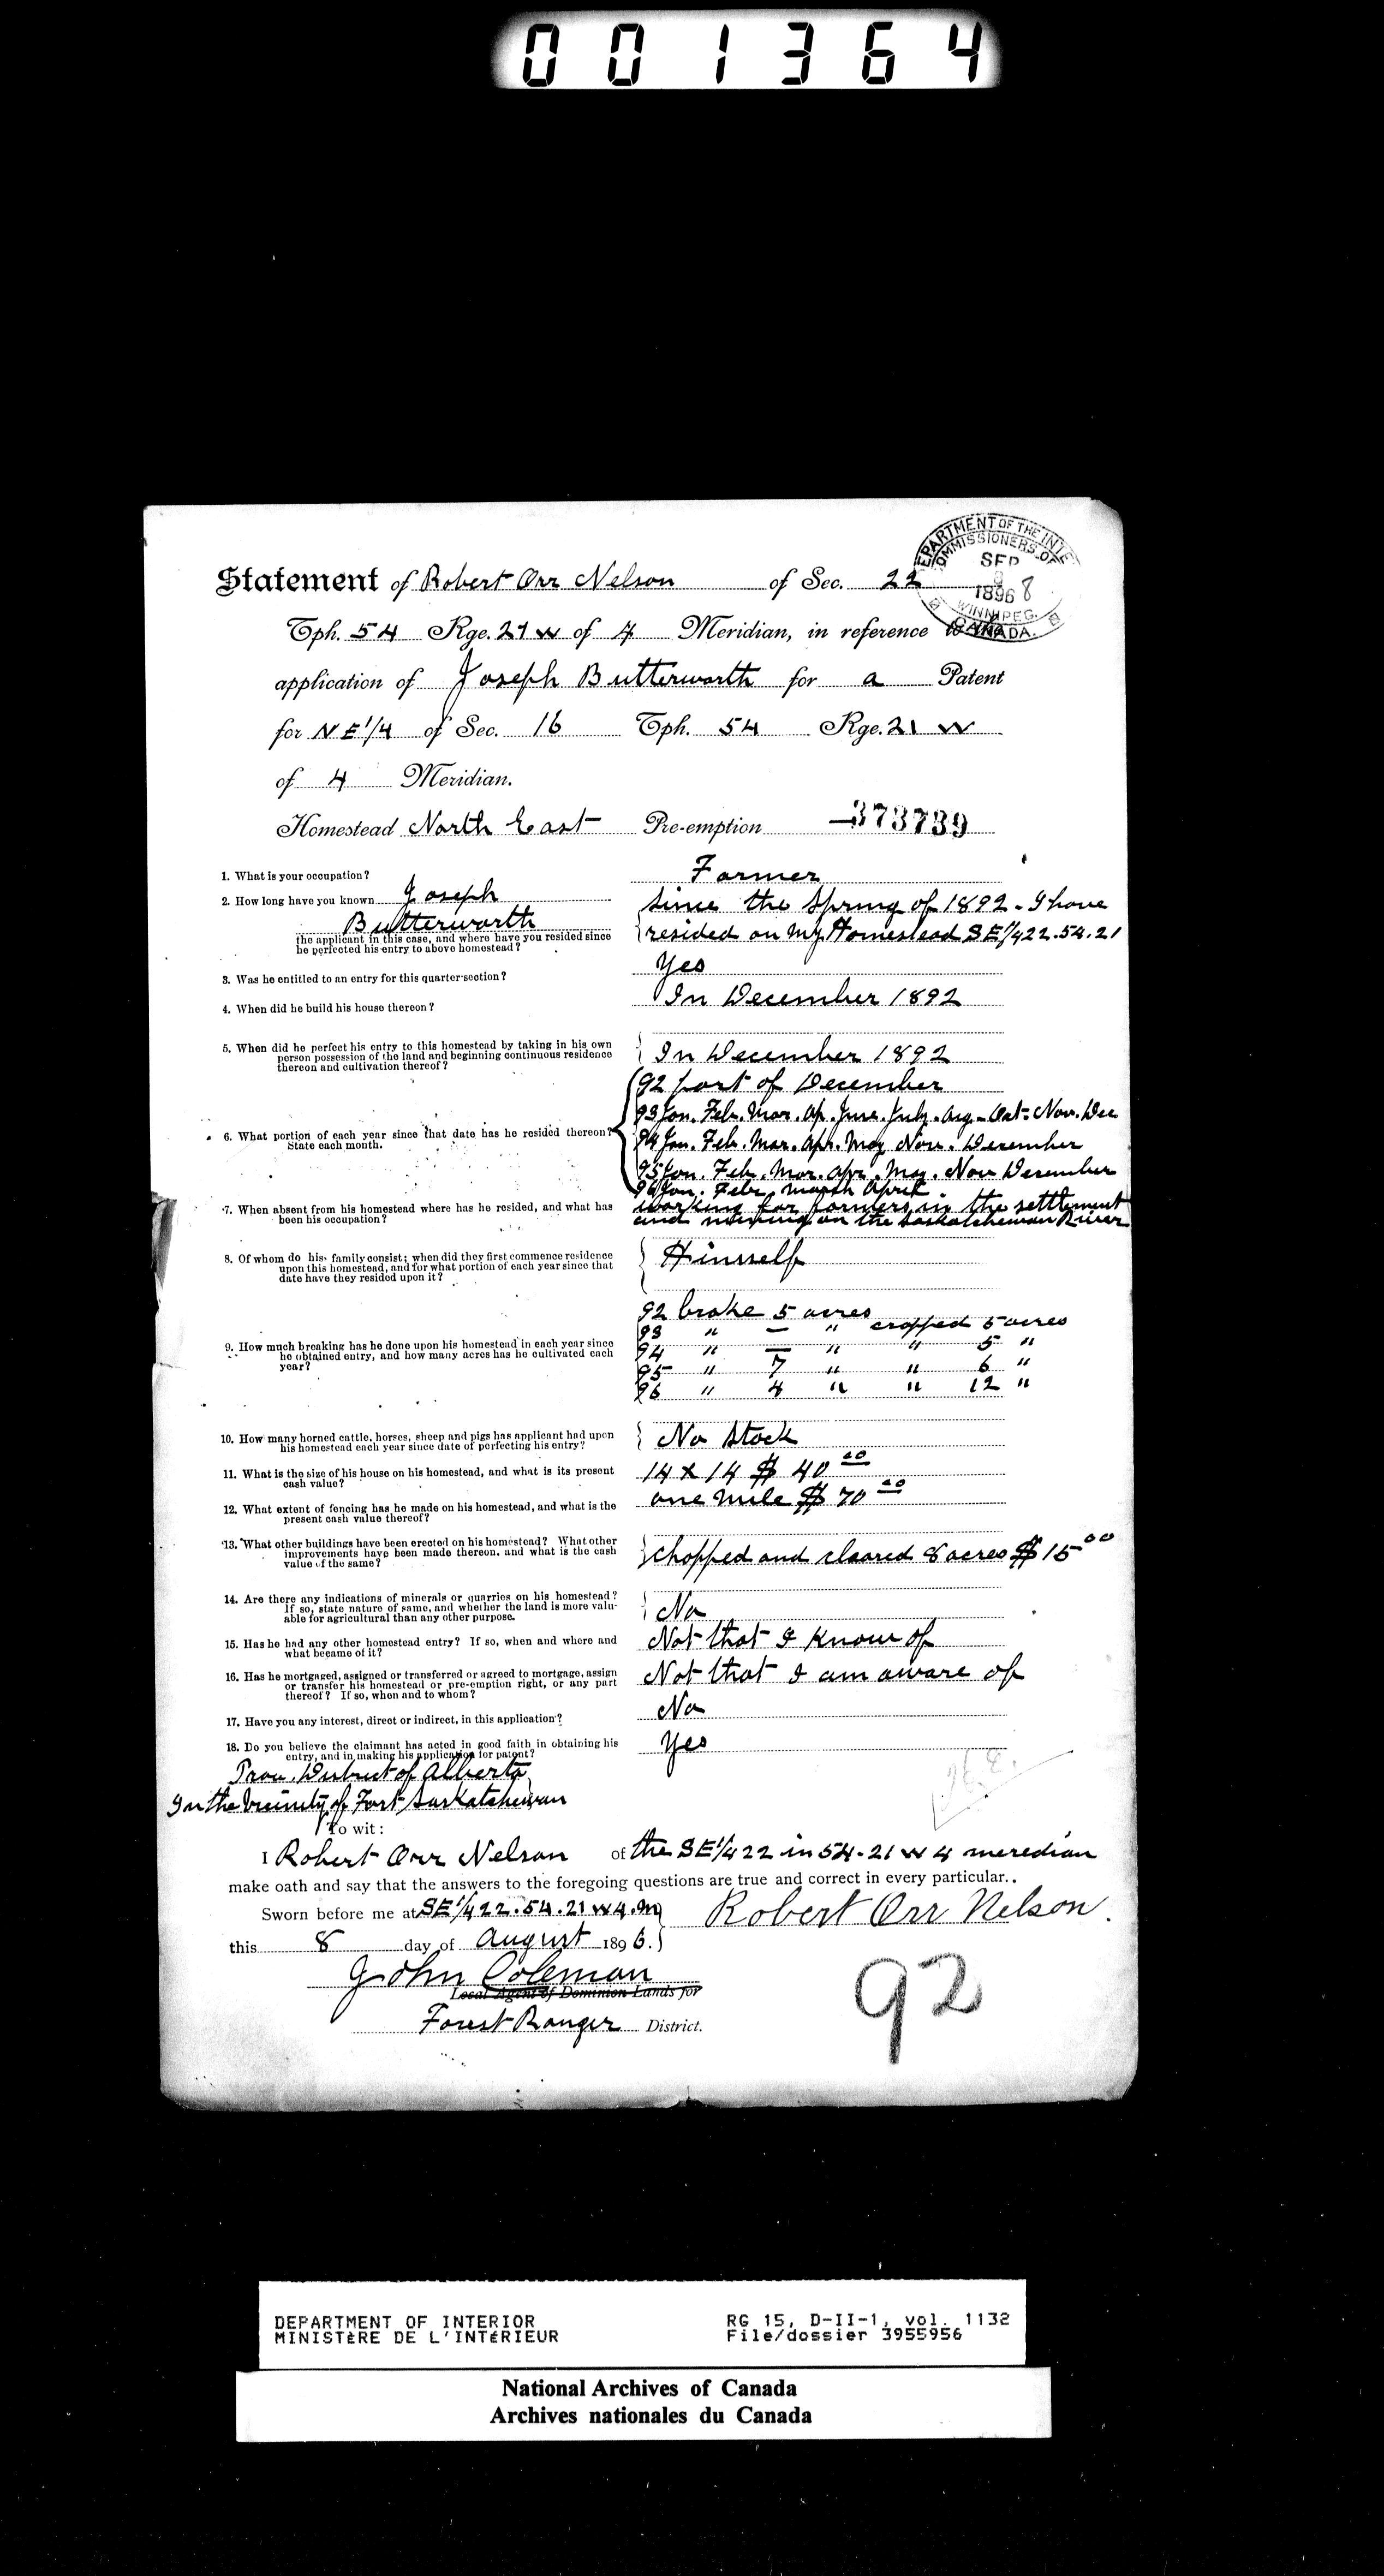 001364
DEPARTMENT OF THE INTE
COMMISSIONERS OF
SEP
8
1896 8
WINNIPEG.
CANADA.
Statement of Robert Orr Nelson of Sec. 22
Tph. 54 Rge. 21 W of 4 Meridian, in reference to
application of Joseph Butterworth for a Patent
for NE 1/4 of Sec. 16 Tph. 54 Rge. 21 W
of 4 Meridian.
Homestead North East Pre-emption 373739
1. What is your occupation? Farmer
2. How long have you known Joseph
Butterworth
the applicant in this case, and where have you resided since
he perfected his entry to above homestead?
since the Spring of 1892 - I have
resided on my Homestead SE 1/4 22.54.21
3. Was he entitled to an entry for this quarter-section? Yes
4. When did he build his house thereon? In December 1892
5. When did he perfect his entry to this homestead by taking in his own
person possession of the land and beginning continuous residence
thereon and cultivation thereof?
In December 1892
6. What portion of each year since that date has he resided thereon?
State each month.
92 part of December
93 Jan. Feb. Mar. Ap. June. July. Aug - Oct. Nov. Dec
94 Jan. Feb. Mar. Apr. May Nov. December
95 Jan. Feb. Mar. Apr. May. Nov December
96 Jan. Feb. march April.
7. When absent from his homestead where has he resided, and what has
been his occupation?
working for farmers in the settlement
and mining on the Saskatchewan River
8. Of whom do his family consist; when did they first commence residence
upon this homestead, and for what portion of each year since that
date have they resided upon it?
Himself
9. How much breaking has he done upon his homestead in each year since
he obtained entry, and how many acres has he cultivated each
year?
92 broke 5 acres
93 " — " cropped 5 acres
94 " — " " 5 "
95 " 7 " " 6 "
96 " 4 " " 12 "
10. How many horned cattle, horses, sheep and pigs has applicant had upon
his homestead each year since date of perfecting his entry?
No Stock
11. What is the size of his house on his homestead, and what is its present
cash value?
14 x 14 $ 40 00
12. What extent of fencing has he made on his homestead, and what is the
present cash value thereof?
one mile $ 70 00
13. What other buildings have been erected on his homestead? What other
improvements have been made thereon, and what is the cash
value of the same?
Chopped and cleared 8 acres $ 15 00
14. Are there any indications of minerals or quarries on his homestead?
If so, state nature of same, and whether the land is more valu-
able for agricultural than any other purpose.
No
15. Has he had any other homestead entry? If so, when and where and
what became of it?
Not that I know of
16. Has he mortgaged, assigned or transferred or agreed to mortgage, assign
or transfer his homestead or pre-emption right, or any part
thereof? If so, when and to whom?
Not that I am aware of
17. Have you any interest, direct or indirect, in this application? No
18. Do you believe the claimant has acted in good faith in obtaining his
entry, and in making his application for patent?
Yes
Prov. District of Alberta
In the Vicinity of Fort Saskatchewan
To wit:
I Robert Orr Nelson of the SE 1/4 22 in 54-21 W 4 meredian
make oath and say that the answers to the foregoing questions are true and correct in every particular.
Sworn before me at SE 1/4 22.54.21 W 4.M
this 8 day of August 1896.
Robert Orr Nelson.
John Coleman
Local Agent of Dominion Lands for
Forest Ranger District.
92
DEPARTMENT OF INTERIOR
MINISTÈRE DE L'INTÉRIEUR
RG 15, D-II-1, vol. 1132
File/dossier 3955956
National Archives of Canada
Archives nationales du Canada